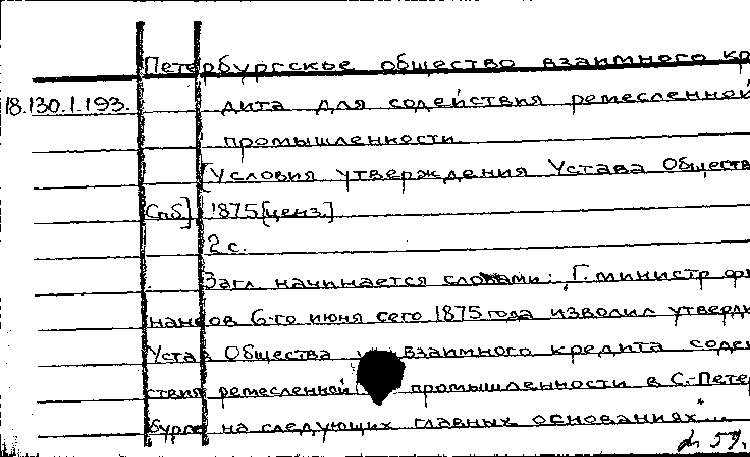 Петербургское общество взаимного кре
18.130.1.193. дита для содействия ремесленной
промышленности.
[Условия утверждения Устава Обществ
Спб] 1875 [ценз.]
2 с.
Загл. начинается словами: "Г. министр фи
нансов 6-го июня сего 1875 года изволил утверди
Устав Общества взаимного кредита содей
ствия ремесленной промышленности в С.-Петер
бурге на следующих главных основаниях"...